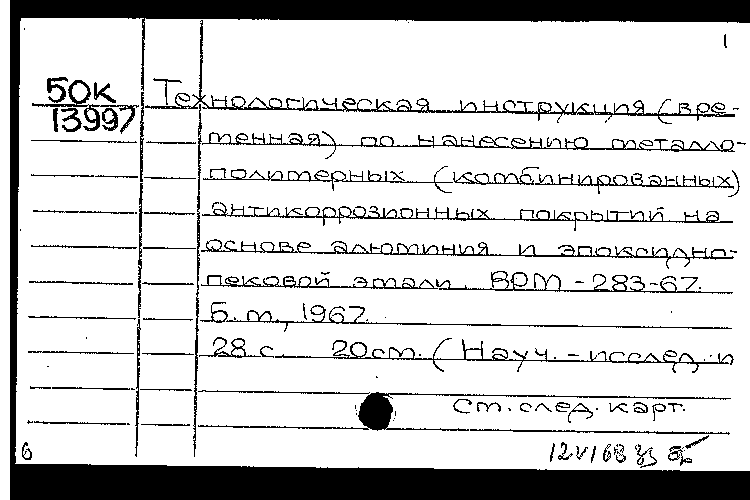 1
50К Технологическая инструкция (вре-
13997
менная) по нанесению металло-
полимерных (комбинированных)
антикоррозионных покрытий на
основе алюминия и эпоксидно-
пековой эмали. ВРМ-283-67.
Б. м., 1967.
28 с. 20см. (Науч.-исслед. и
См. след. карт.
6 12 VI 68